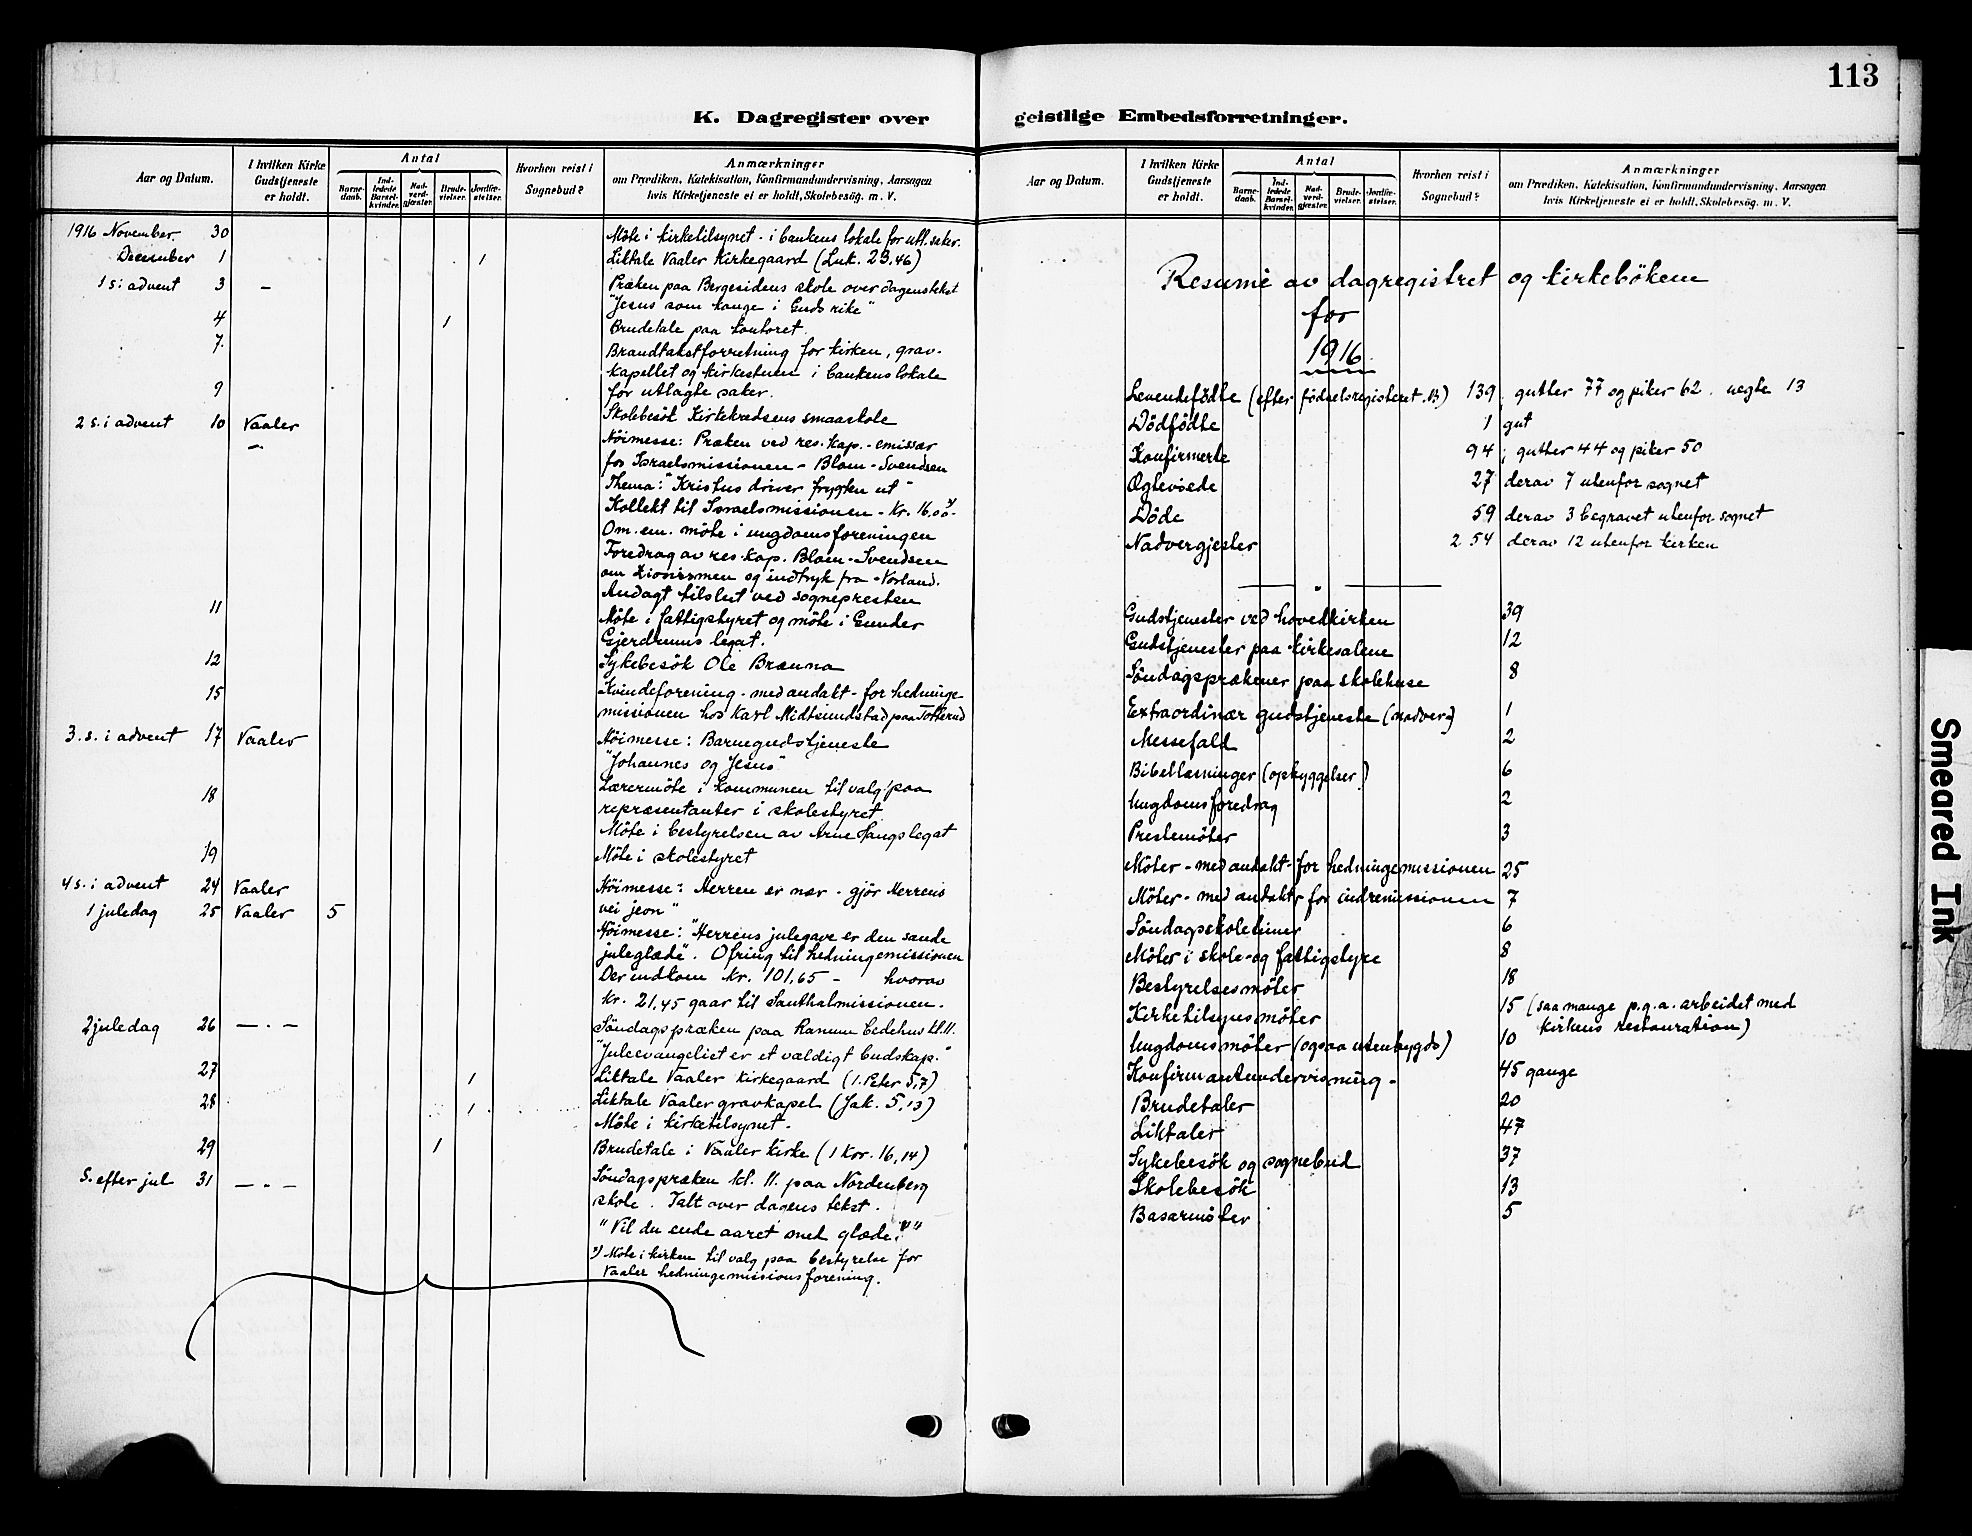 113
K. Dagregister over geistlige Embedsforretninger.
Aar og Datum.
I hvilken Kirke Gudstjeneste er holdt.
Antal
Barne-daab.
Ind-ledede Barsel-kvinder.
Nad-verd-gjæster.
Brude-vielser.
Jordfæ-stelser.
Hvorhen reist i Sognebud?
Anmærkninger
om Prædiken, Katekisation, Konfirmandundervisning, Aarsagen
hvis Kirketjeneste ei er holdt, Skolebesøg. m. V.
1916 November 30 Möte i kirketilsynet - i bankens lokale for utl. saker.
December 1 1 Liktale Vaaler Kirkegaard (Luk. 23.46)
1 s. i advent 3 - Præken paa Bergesidens skole over dagens tekst
"Jesus som konge i Guds rike"
4 1 Brudetale paa kontoret.
7. Brandtakstforretning for kirken, grav-
kapellet og kirkestuen i bankens lokale
for utlagte saker.
9 Skolebesök Kirkekredsens smaaskole
2 s. i advent 10 Vaaler Höimesse: Præken ved res. kap. - emissær
for Israelsmissionen - Blom-Svendsen
Thema: "Kristus driver frygten ut"
Kollekt til Israelsmissionen - Kr. 16.00-
Om. em. möte i ungdomsforeningen
Foredrag av res. kap. Blom-Svendsen
om Zionismen og indtryk fra
Andagt tilslut ved sognepresten
11 Möte i fattigstyret og möte i Gunder
Gjerdrums legat.
12 Sykebesök Ole Bræuna
15 Kvindeforening - med andakt - for hedninge
missionen hos Karl Midtsundstad paa Totterud
3. s. i advent 17 Vaaler Höimesse: Barnegudstjeneste
"Johannes og Jesus"
18 Lærermöte i kommunen til valg paa
repræsentanter i skolestyret
Möte i bestyrelsen av Arne Haugs legat
19 Möte i skolestyret
4 s. i advent 24 Vaaler Höimesse: Herren er nær - gjör Herrens
vei jevn"
1 juledag 25 Vaaler 5 Höimesse: "Herrens julegave er den sande
juleglæde". Ofring til hedningemissionen
Der indkom kr. 101,65 - hvorav
kr. 21,45 gaar til Santhalmissionen.
2 juledag 26 - . - Söndagspræken paa Ranum bedehus kl. 11.
"Juleevangeliet er et vældigt budskap."
27 1 Liktale Vaaler kirkegaard (1. Peter 5,7)
28 1 Liktale Vaaler gravkapel (Jak. 5,13)
Möte i kirketilsynet.
29 1 Brudetale i Vaaler kirke (1 Kor. 16,14)
S. efter jul 31 - . - Söndagspræken kl. 11. paa Nordenberg
skole. Talt over dagens tekst.
"Vil du ende aaret med glæde?"
*) Möte i kirken til valg paa bestyrelse for
Vaaler hedningemissionsforening.
Aar og Datum.
I hvilken Kirke Gudstjeneste er holdt.
Antal
Barne-daab.
Ind-ledede Barsel-kvinder.
Nad-verd-gjæster.
Brude-vielser.
Jordfæ-stelser.
Hvorhen reist i Sognebud?
Anmærkninger
om Prædiken, Katekisation, Konfirmandundervisning, Aarsagen
hvis Kirketjeneste ei er holdt, Skolebesög. m. V.
Resumé av dagregistret og kirkebökene
for
1916.
Levendefödte (efter födselsregisteret. B) 139; gutter 77 og piker 62. uegte 13
Dödfödte 1 gut
Konfirmerte 94; gutter 44 og piker 50
Ægteviede 27 derav 7 utenfor sognet
Döde 59 derav 3 begravet utenfor sognet
Nadvergjester 254 derav 12 utenfor kirken
Gudstjenester ved hovedkirken 39
Gudstjenester paa kirkesalene 12
Söndagsprækener paa skolehuse 8
Extraordinær gudstjeneste (nadverd) 1
Messefald 2
Bibellæsninger (opbyggelser) 6
Ungdomsforedrag 2
Prestemöter 3
Möter - med andakt - for hedningemissionen 25
Möter - med andakt - for indremissionen 7
Söndagsskoletimer 6
Möter i skole- og fattigstyre 8
Bestyrelsesmöter 18
Kirketilsynsmöter 15 (saa mange p.g.a. arbeidet med
kirkens restauration)
Ungdomsmöter (ogsaa utenbygds) 10
Konfirmantundervisning - 45 gange
Brudetaler 20
Liktaler 47
Sykebesök og sognebud 37
Skolebesök 13
Basarmöter 5
Smeared Ink